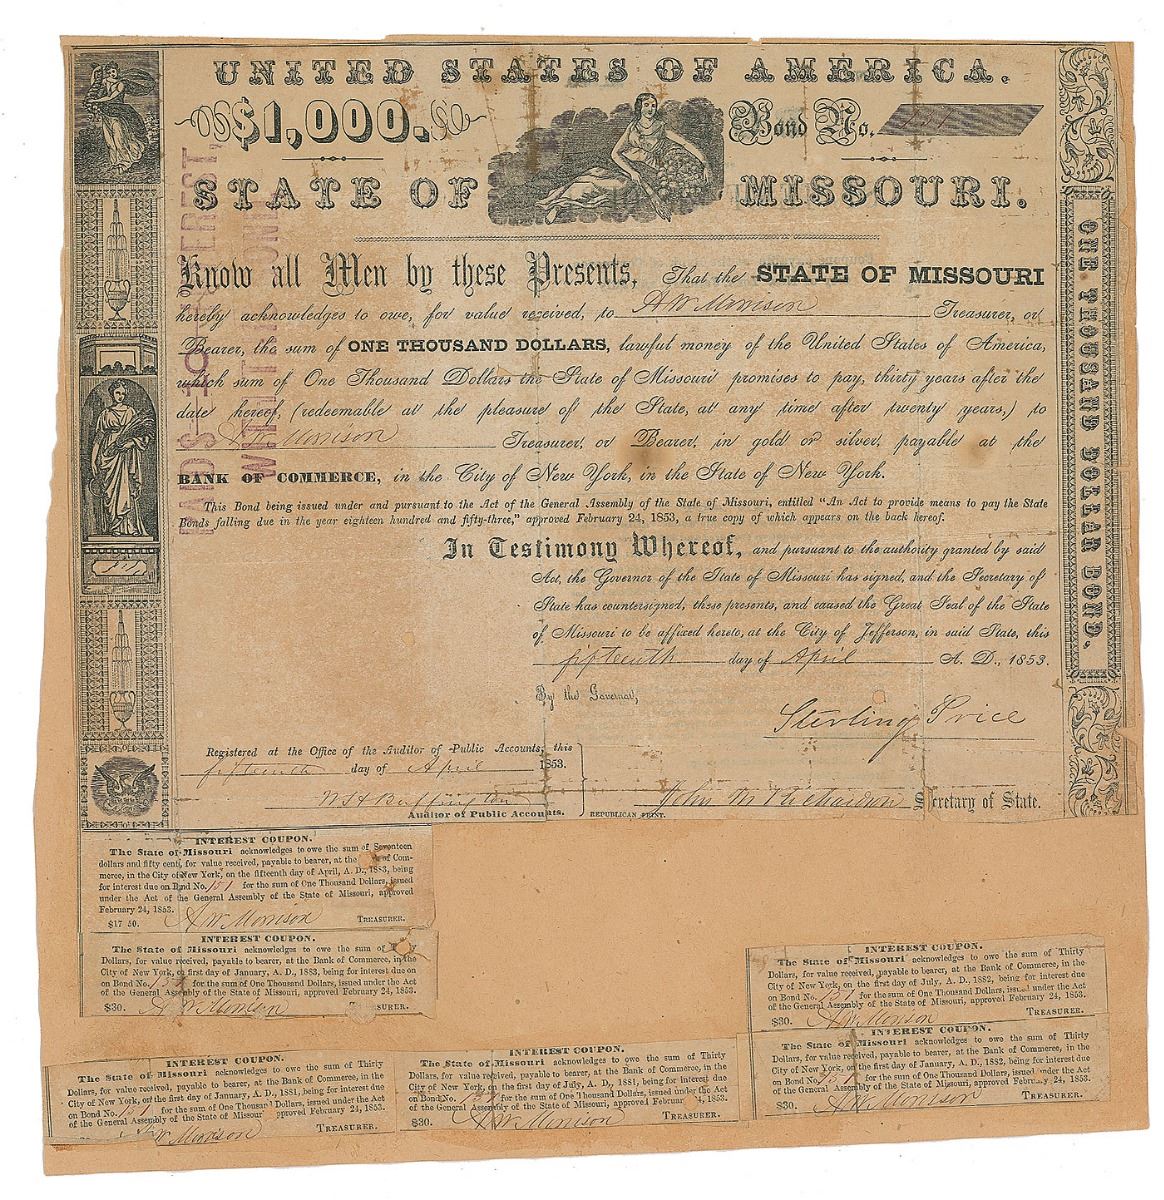 UNITED STATES OF AMERICA.
$1,000.
Bond No. 151
STATE OF MISSOURI.
Know all Men by these Presents, That the STATE OF MISSOURI
hereby acknowledges to owe, for value received, to A W Morrison Treasurer, or
Bearer, the sum of ONE THOUSAND DOLLARS, lawful money of the United States of America,
which sum of One Thousand Dollars the State of Missouri promises to pay, thirty years after the
date hereof, (redeemable at the pleasure of the State, at any time after twenty years,) to
A W Morrison Treasurer, or Bearer, in gold or silver, payable at the
BANK OF COMMERCE, in the City of New York, in the State of New York.
This Bond being issued under and pursuant to the Act of the General Assembly of the State of Missouri, entitled "An Act to provide means to pay the State
Bonds falling due in the year eighteen hundred and fifty-three," approved February 24, 1853, a true copy of which appears on the back hereof.
In Testimony Whereof, and pursuant to the authority granted by said
Act, the Governor of the State of Missouri has signed, and the Secretary of
State has countersigned, these presents, and caused the Great Seal of the State
of Missouri to be affixed hereto, at the City of Jefferson, in said State, this
fifteenth day of April A. D., 1853.
By the Governor,
Sterling Price
Registered at the Office of the Auditor of Public Accounts, this
fifteenth day of April 1853.
Wm H Buffington
Auditor of Public Accounts.
REPUBLICAN PRINT.
John M Richardson Secretary of State.
ONE THOUSAND DOLLAR BOND.
INTEREST COUPON.
The State of Missouri acknowledges to owe the sum of Seventeen
dollars and fifty cents, for value received, payable to bearer, at the of Com-
merce, in the City of New York, on the fifteenth day of April, A. D., 1883, being
for interest due on Bond No. 151 for the sum of One Thousand Dollars, issued
under the Act of the General Assembly of the State of Missouri, approved
February 24, 1853.
$17 50. A W Morrison TREASURER.
INTEREST COUPON.
The State of Missouri acknowledges to owe the sum of
Dollars, for value received, payable to bearer, at the Bank of Commerce, in the
City of New York, on first day of January, A. D., 1883, being for interest due on
on Bond No. 151 for the sum of One Thousand Dollars, issued under the Act
of the General Assembly of the State of Missouri, approved February 24, 1853.
$30. A W Morrison TREASURER.
INTEREST COUPON.
The State of Missouri acknowledges to owe the sum of Thirty
Dollars, for value received, payable to bearer, at the Bank of Commerce, in the
City of New York, on the first day of July, A. D., 1882, being for interest due
on Bond No. 151 for the sum of One Thousand Dollars, issued under the Act
of the General Assembly of the State of Missouri, approved February 24, 1853.
$30. A W Morrison TREASURER.
INTEREST COUPON.
The State of Missouri acknowledges to owe the sum of Thirty
Dollars, for value received, payable to bearer, at the Bank of Commerce, in the
City of New York, on the first day of January, A. D., 1882, being for interest due
on Bond No. 151 for the sum of One Thousand Dollars, issued under the Act
of the General Assembly of the State of Missouri, approved February 24, 1853.
$30. A W Morrison TREASURER.
INTEREST COUPON.
The State of Missouri acknowledges to owe the sum of Thirty
Dollars, for value received, payable to bearer, at the Bank of Commerce, in the
City of New York, on the first day of January, A. D., 1881, being for interest due
on Bond No. 151 for the sum of One Thousand Dollars, issued under the Act
of the General Assembly of the State of Missouri approved February 24, 1853.
A W Morrison TREASURER.
INTEREST COUPON.
The State of Missouri acknowledges to owe the sum of Thirty
Dollars, for value received, payable to bearer, at the Bank of Commerce, in the
City of New York, on the first day of July, A. D., 1881, being for interest due
on Bond No. 151 for the sum of One Thousand Dollars, issued under the Act
of the General Assembly of the State of Missouri, approved February 24, 1853.
$30. A W Morrison TREASURER.